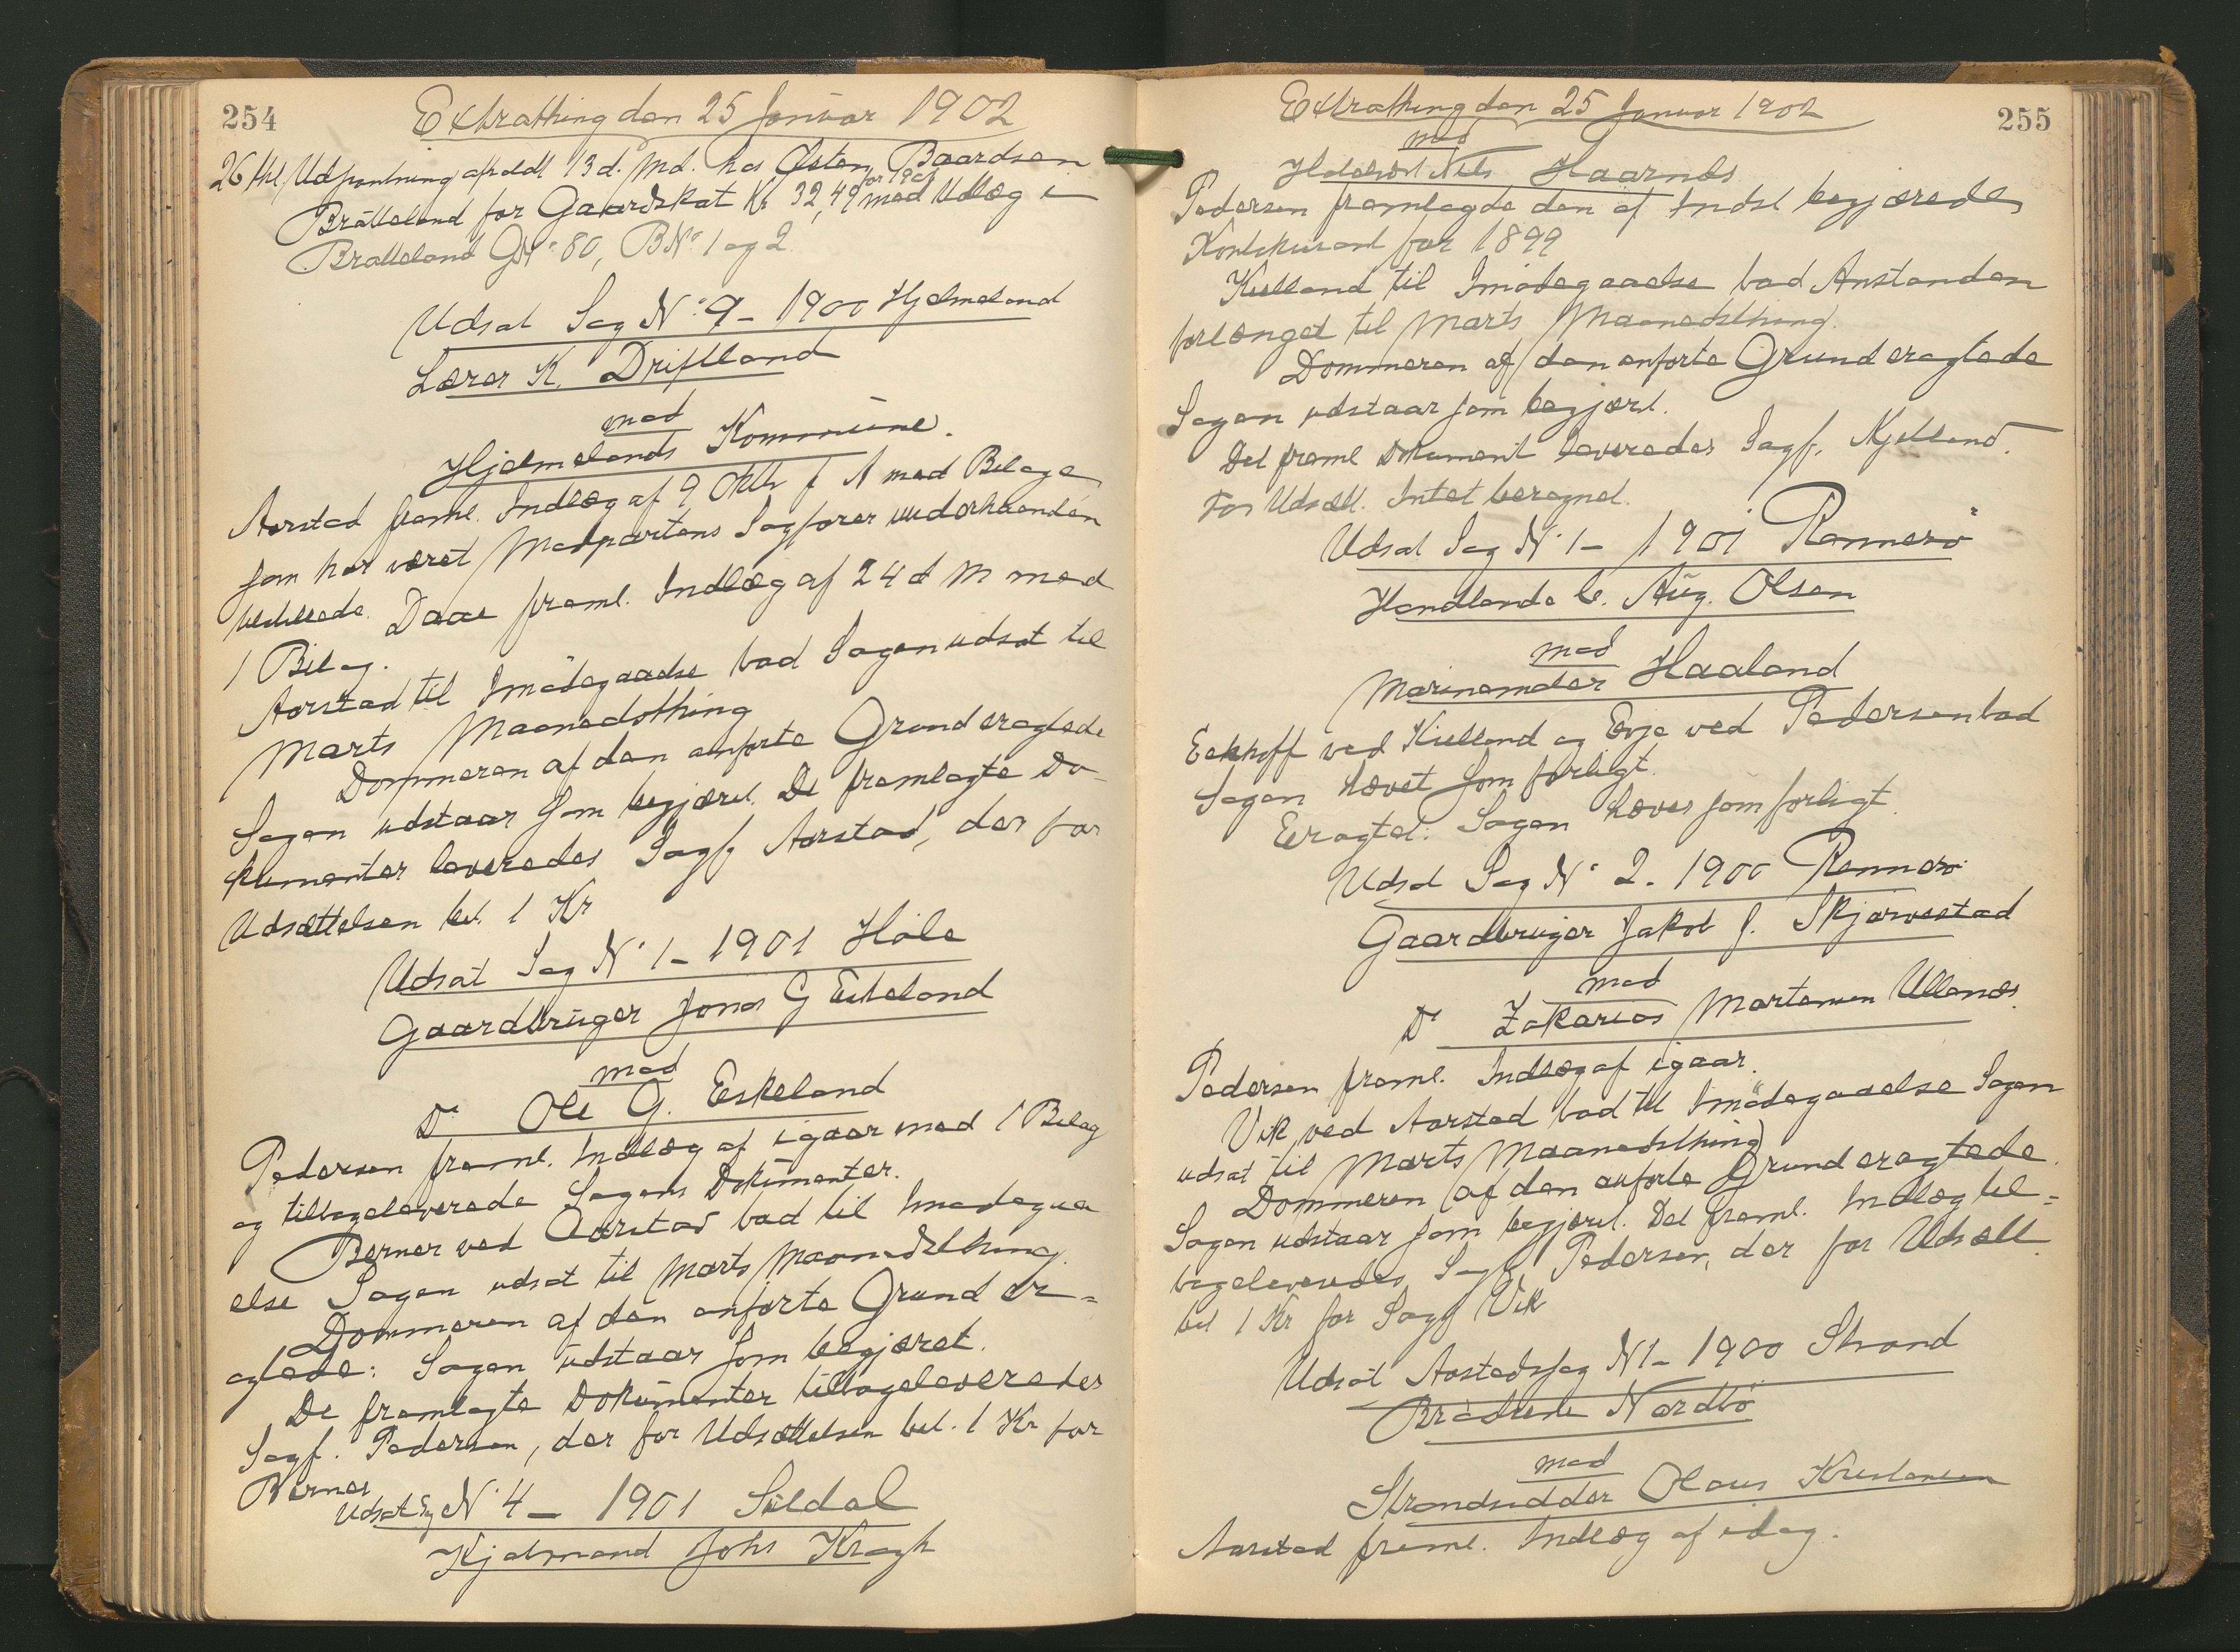 254
Extrathing den 25 Januar 1902
26 thl, Udpantning afholdt 13 d. Md. hos Østen Baardsen
Bråtteland for Gaardskat for 1901 Kr 32,49 med Udlæg i
Bratteland GNo 80, BNo 1 og 2
Udsat Sag No 9 - 1900 Hjelmeland
Lærer K. Driftland
mod
Hjelmelands Kommune.
Aarstad freml. Indlæg af 9 Oktb f A med Bilage
som har været Modpartens Sagfører underhaanden
tilstillede. Daae freml. Indlæg af 24 d M med
1 Bilag.
Aarstad til Imødegaaelse bad Sagen udsat til
Marts Maanedsthing
Dommeren af den anførte Grund eragtede
Sagen udstaar som begjært. De fremlagte Do-
kumenter leveredes Sagf Aarstad, der for
Udsættelsen bet. 1 Kr
Udsat Sag No 1 - 1901 Høle
Gaardbruger Jonas G Eskeland
mod
Do Ole G. Eskeland
Pedersen freml. Indlæg af igaar med 1 Bilag
og tilbageleverede Sagens Dokumenter.
Berner ved Aarstad bad til Imødegaa
else Sagen udsat til Marts Maanedsthing.
Dommeren af den anførte Grund er=
agtede: Sagen udstaar som begjæret.
De fremlagte Dokumenter tilbageleveredes
Sagf. Pedersen, der for Udsættelsen bet. 1 Kr for
Berner
Udsat Sag No 4 - 1901 Suldal
Kjøbmand Johs Kragh
255
Extrathing den 25 Januar 1902
mod
Nils Haarnes
Pedersen fremlagde den af Indst begjærede
Kontokurant for 1899
Kielland til Imødegaaelse bad Anstanden
forlænget til Marts Maanedsthing.
Dommeren af den anførte Grund eragtede
Sagen udstaar som begjært.
Det freml Dokument leveredes Sagf. Kjelland.
For Udsætt. Intet beregnet.
Udsat Sag No 1 - 1901 Rennesø
Handlende C. Aug. Olsen
mod
Marinemder Haaland
Eckhoff ved Kielland og Evje ved Pedersen bad
Sagen hævet som forligt.
Eragtet: Sagen hæves som forligt.
Udsat Sag No 2 - 1900 Rennesø
Gaardbruger Jakob J. Skjørvestad
mod
Do Zakarias Martensen Ullenes.
Pedersen freml. Indlæg af igaar.
Vik, ved Aarstad bad til Imødegaaelse Sagen
udsat til Marts Maanedsthing
Dommeren af den anførte Grund eragtede.
Sagen udstaar som begjært. Det freml. Indlæg til=
bageleveredes Sagf Pedersen, der for Udsætt.
bet 1 Kr for Sagf Vik
Udsat Aastedssag N 1 - 1900 Strand
Brødrene Nordbø
mod
Strandsidder Olaus Kristensen
Aarstad freml. Indlæg af idag.